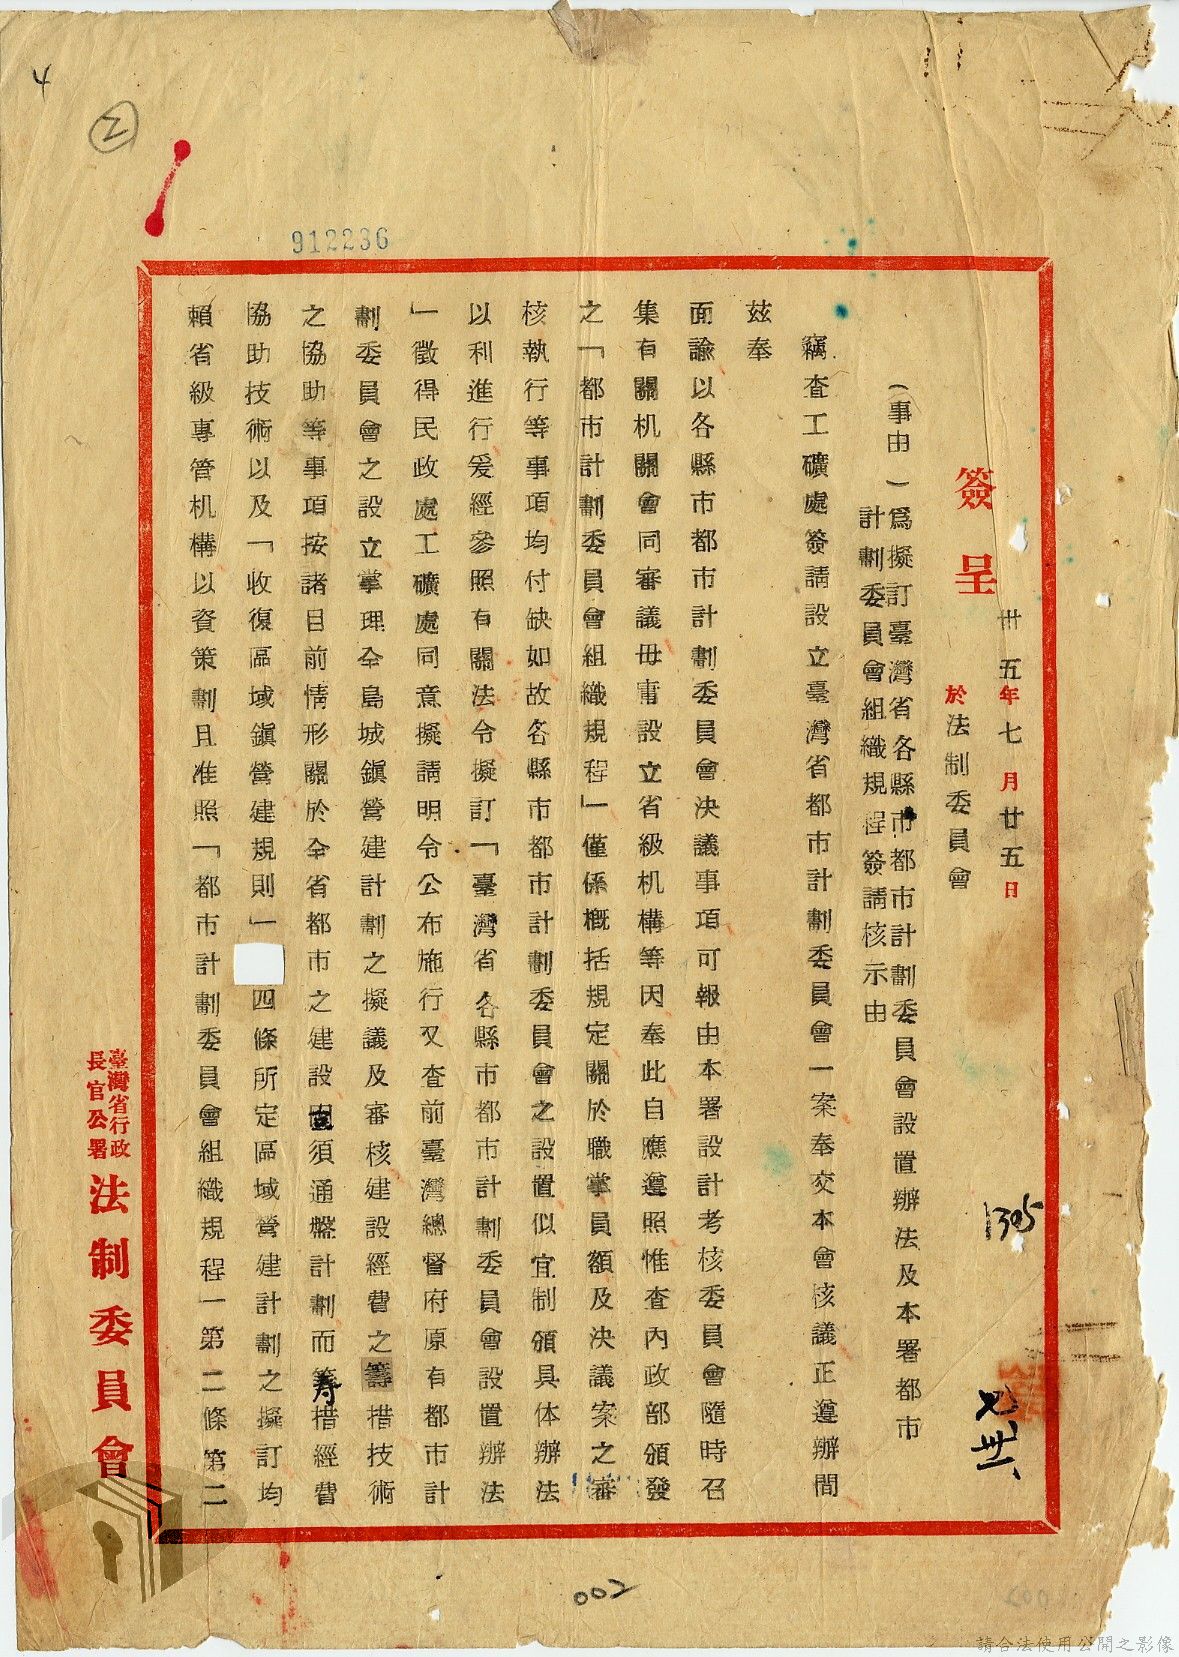 4
2
912236
簽呈
卅五年七月廿五日
於法制委員會
(事由)為擬訂臺灣省各縣市都市計劃委員會設置辦法及本署都市
計劃委員會組織規程簽請核示由
竊查工礦處簽請設立臺灣省都市計劃委員會一案奉交本會核議正遵辦間
茲奉
面諭以各縣市都市計劃委員會決議事項可報由本署設計考核委員會隨時召
集有關机關會同審議毋庸設立省級机構等因奉此自應遵照惟查內政部頒發
之「都市計劃委員會組織規程」僅係概括規定關於職掌員額及決議案之審
核執行等事項均付缺如故各縣市都市計劃委員會之設置似宜制頒具体辦法
以利進行爰經參照有關法令擬訂「臺灣省各縣市都市計劃委員會設置辦法
」徵得民政處工礦處同意擬請明令公布施行又查前臺灣總督府原有都市計
劃委員會之設立掌理全島城鎮營建計劃之擬議及審核建設經費之籌措技術
之協助等事項按諸目前情形關於全省都市之建設固須通盤計劃而籌措經費
協助技術以及「收復區域鎮營建規則」四條所定區域營建計劃之擬訂均
賴省級專管机構以資策劃且准照「都市計劃委員會組織規程」第二條第二
臺灣省行政
長官公署
法制委員會
1305
002
請合法使用公開之影像